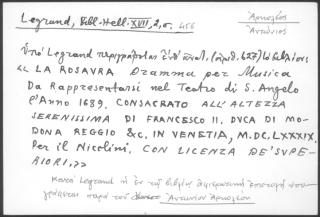 Legrand, Bibl. Hell. XVII, 2, σ. 456
Ἀρποξέος
Ἀντώνιος
Ὑπὸ Legrand περιγράφεται ἐνθ' ἀνωτ. (ἀριθ. 627) τὸ βιβλίον:
«LA ROSAURA Dramma per Musica
Da Rappresentarsi nel Teatro di S. Angelo
l'Anno 1689. CONSACRATO ALL'ALTEZZA
SERENISSIMA DI FRANCESCO II. DVCA DI MO-
DONA REGGIO &C. IN VENETIA, M.DC.LXXXIX.
Per il Nicolini. CON LICENZA DE' SVPE-
RIORI.»
Κατὰ Legrand ἡ ἐν τῷ βιβλίῳ ἀφιερωτικὴ ἐπιστολὴ ὑπο-
γράφεται παρὰ τοῦ Antonium